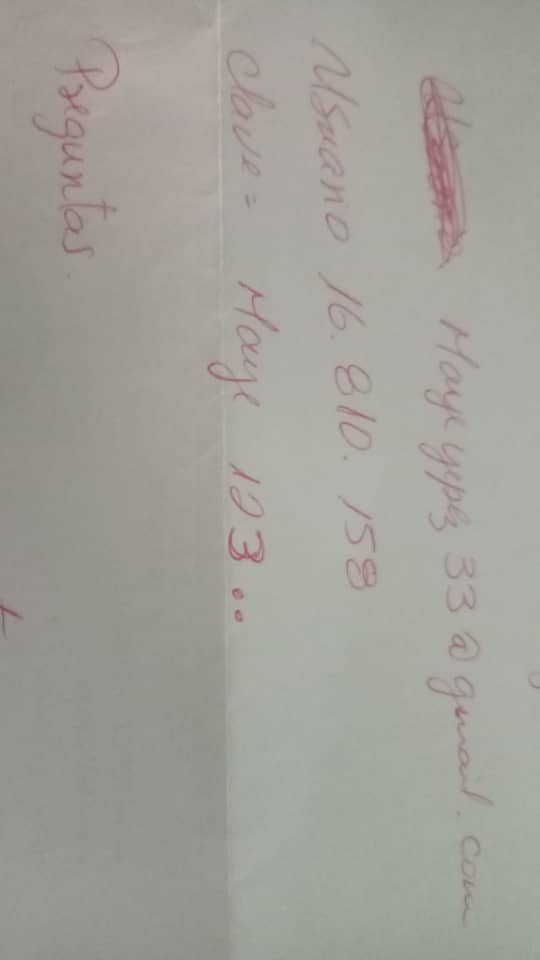 Mayeyepez33@gmail.com
Usuario 16.810.158
Clave = Maye 123..
Preguntas.